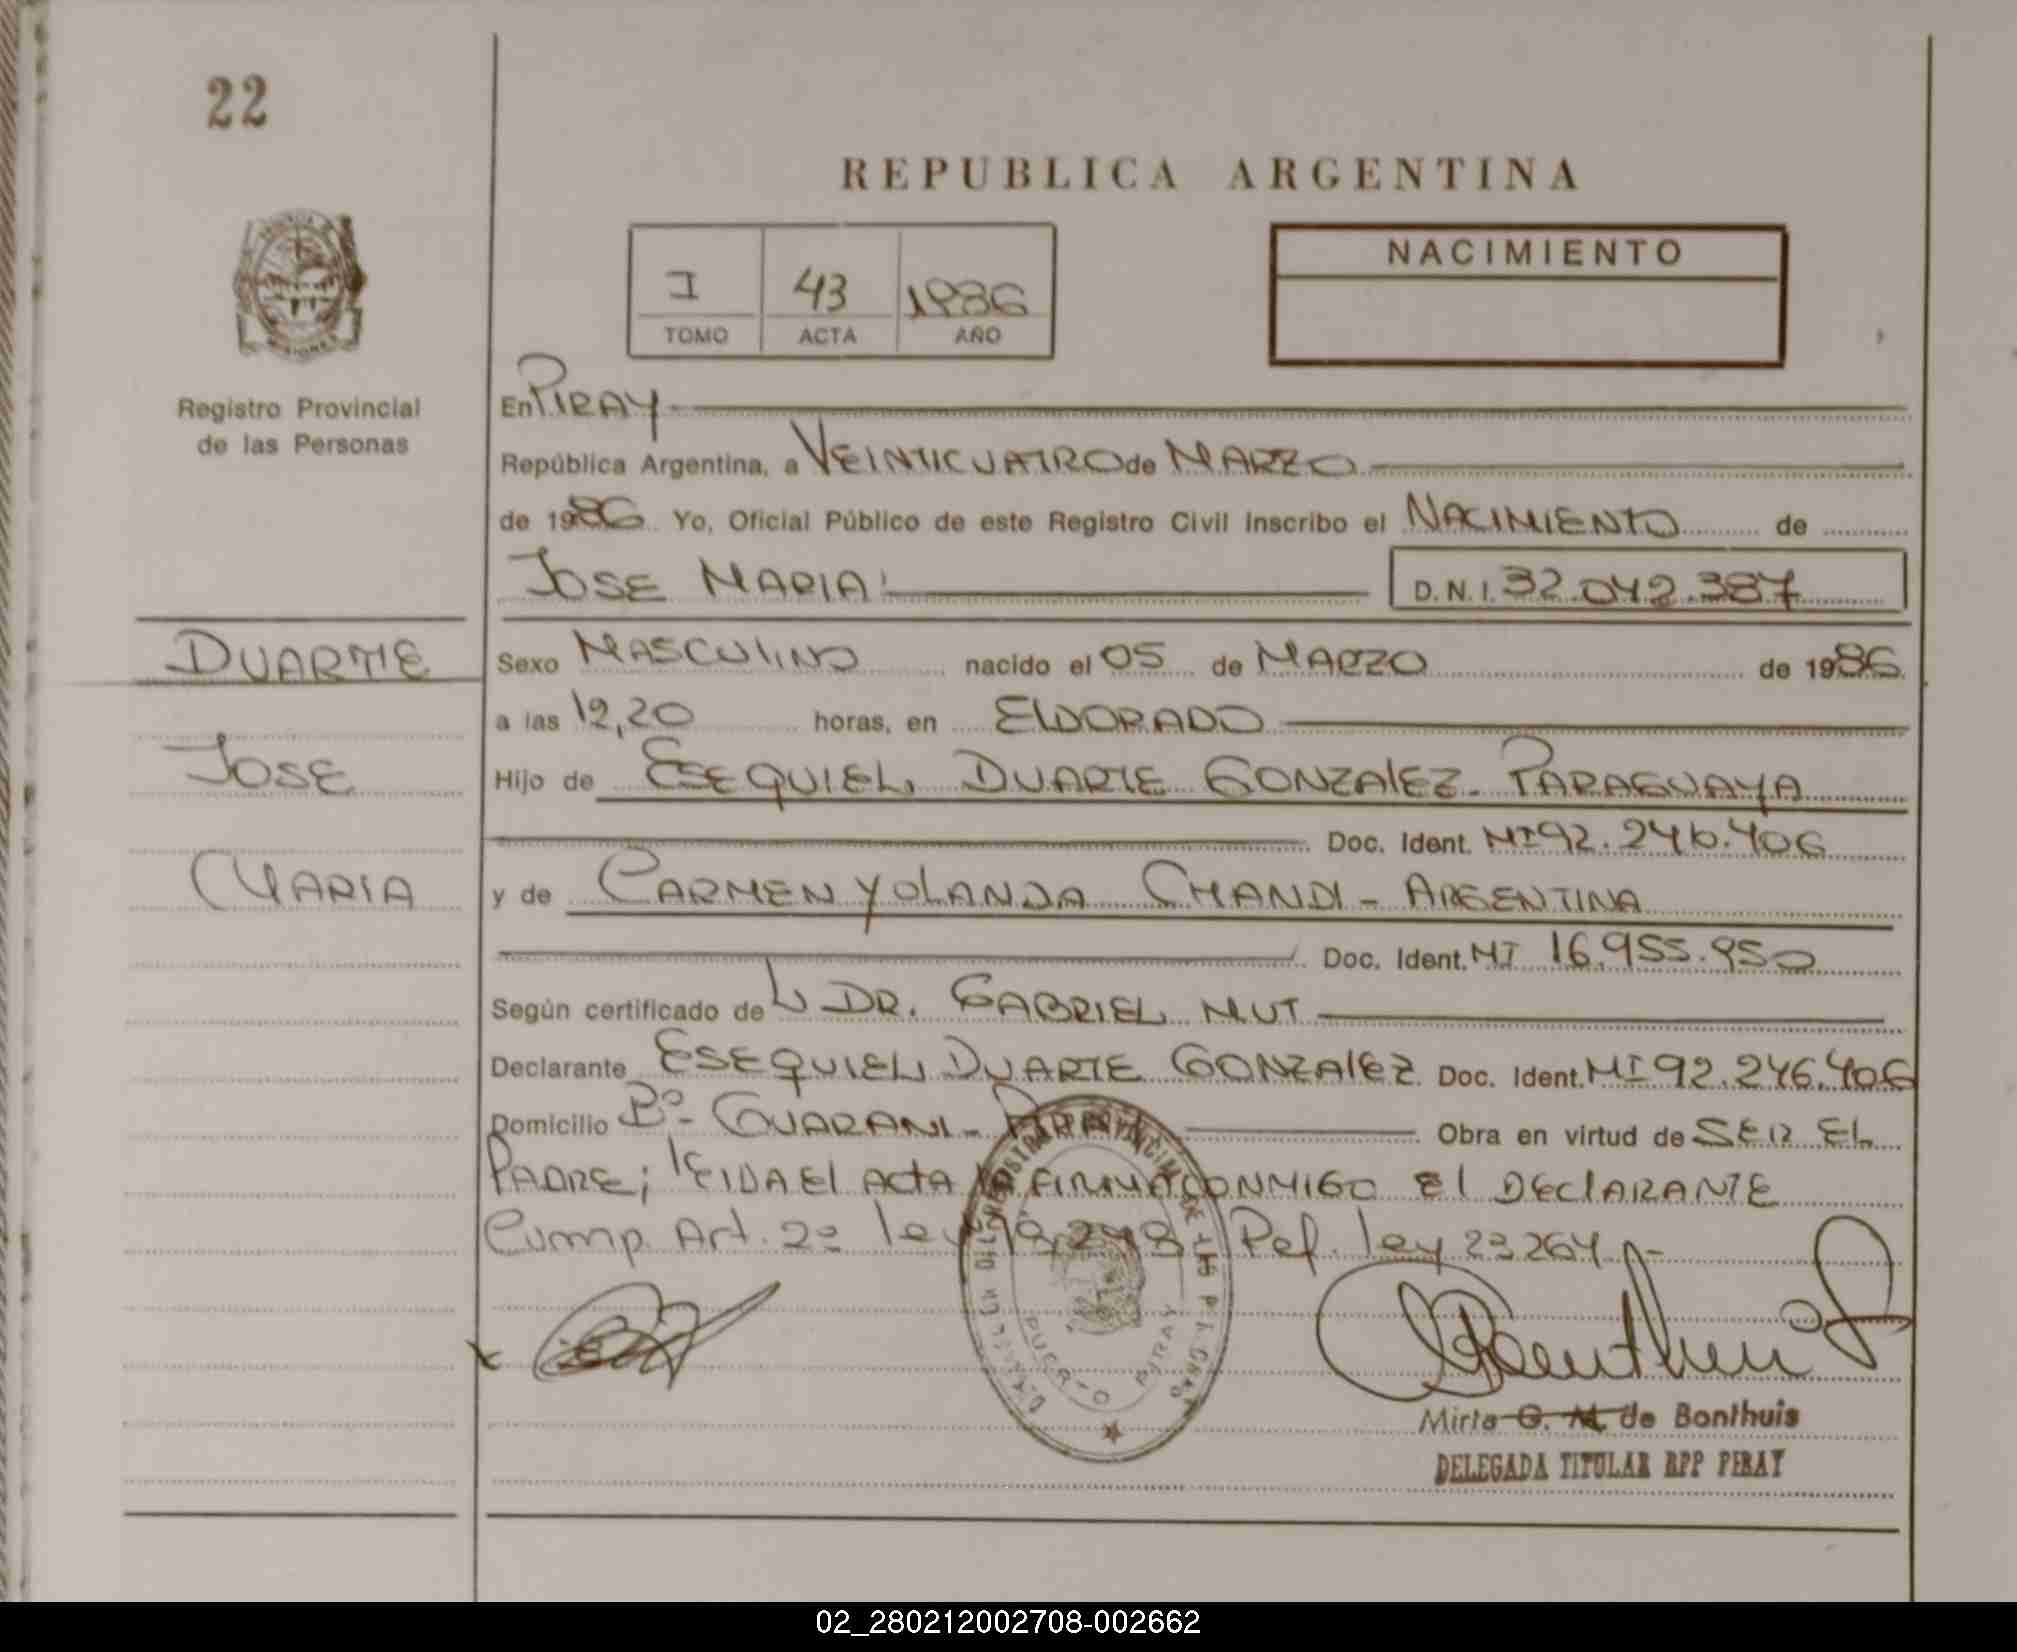 22
REPUBLICA ARGENTINA
I 43 1986
TOMO ACTA AÑO
NACIMIENTO
MISIONES
Registro Provincial
de las Personas
DUARTE
JOSE
MARIA
En PIRAY
República Argentina, a VEINTICUATRO de MARZO
de 1986 Yo, Oficial Público de este Registro Civil inscribo el NACIMIENTO de
JOSE MARIA
D.N.I. 32.042.387
Sexo MASCULINO nacido el 05 de MARZO de 1986
a las 12,20 horas, en ELDORADO
Hijo de ESEQUIEL DUARTE GONZALEZ - PARAGUAYA
Doc. Ident. MI 92.246.406
y de CARMEN YOLANDA CHANDI - ARGENTINA
Doc. Ident. MI 16.955.950
Según certificado de L DR. GABRIEL MUT
Declarante ESEQUIEL DUARTE GONZALEZ Doc. Ident. MI 92.246.406
Domicilio Bº GUARANI - PIRAY Obra en virtud de SER EL
PADRE; LEIDA El ACTA LA FIRMA CONMIGO El DEClARANTE
Cump. Art. 2º ley 18.248 Ref. ley 23264.-
PUERTO PIRAY
Mirta G. M. de Bonthuis
DELEGADA TITULAR RPP PIRAY
02_280212002708-002662